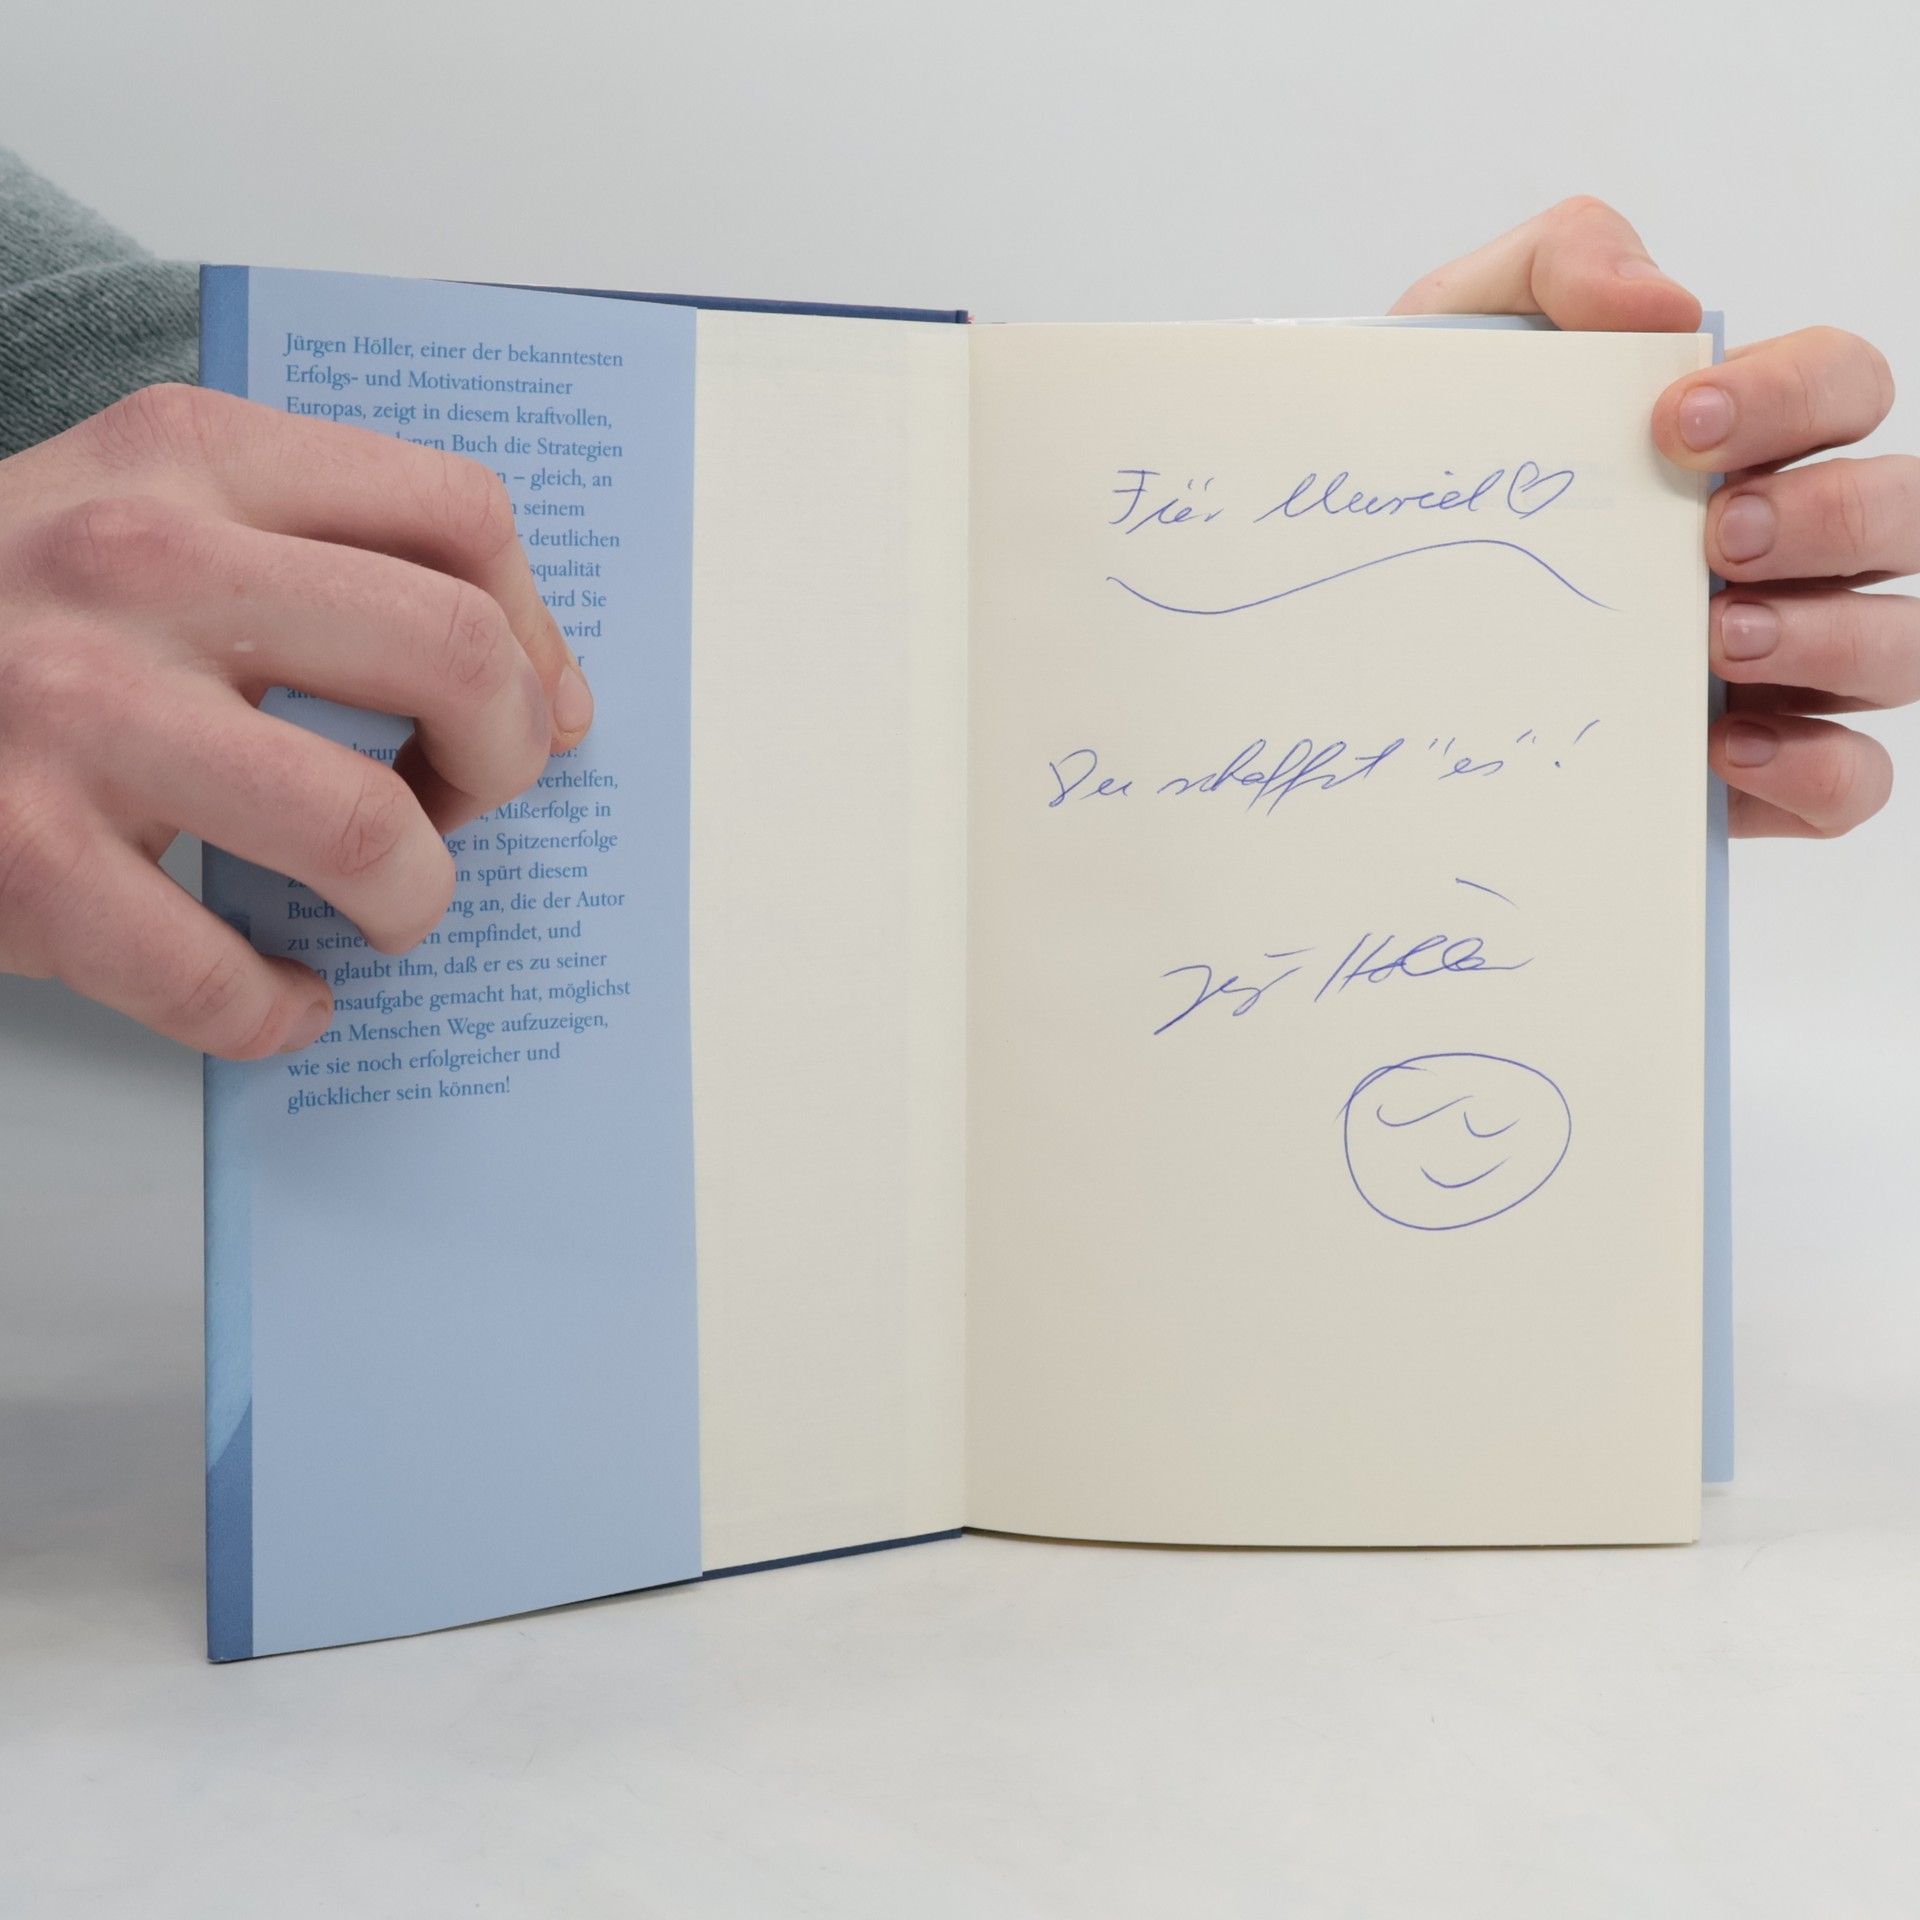 Jürgen Höller, einer der bekanntesten
Erfolgs- und Motivationstrainer
Europas, zeigt in diesem kraftvollen,
Buch die Strategien
– gleich, an
seinem
deutlichen
wird Sie
wird
verhelfen,
Mißerfolge in
in Spitzenerfolge
spürt diesem
Buch an, die der Autor
zu empfindet, und
glaubt ihm, daß er es zu seiner
gemacht hat, möglichst
Menschen Wege aufzuzeigen,
wie sie noch erfolgreicher und
glücklicher sein können!
Für Muriel
Du schaffst "es"!
Jürgen Höller